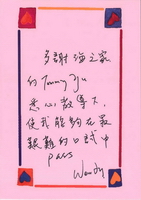 多謝海之家
的 Tommy Yu
悉心教導下,
使我能夠在最
艱難的口試中
pass
Wendy